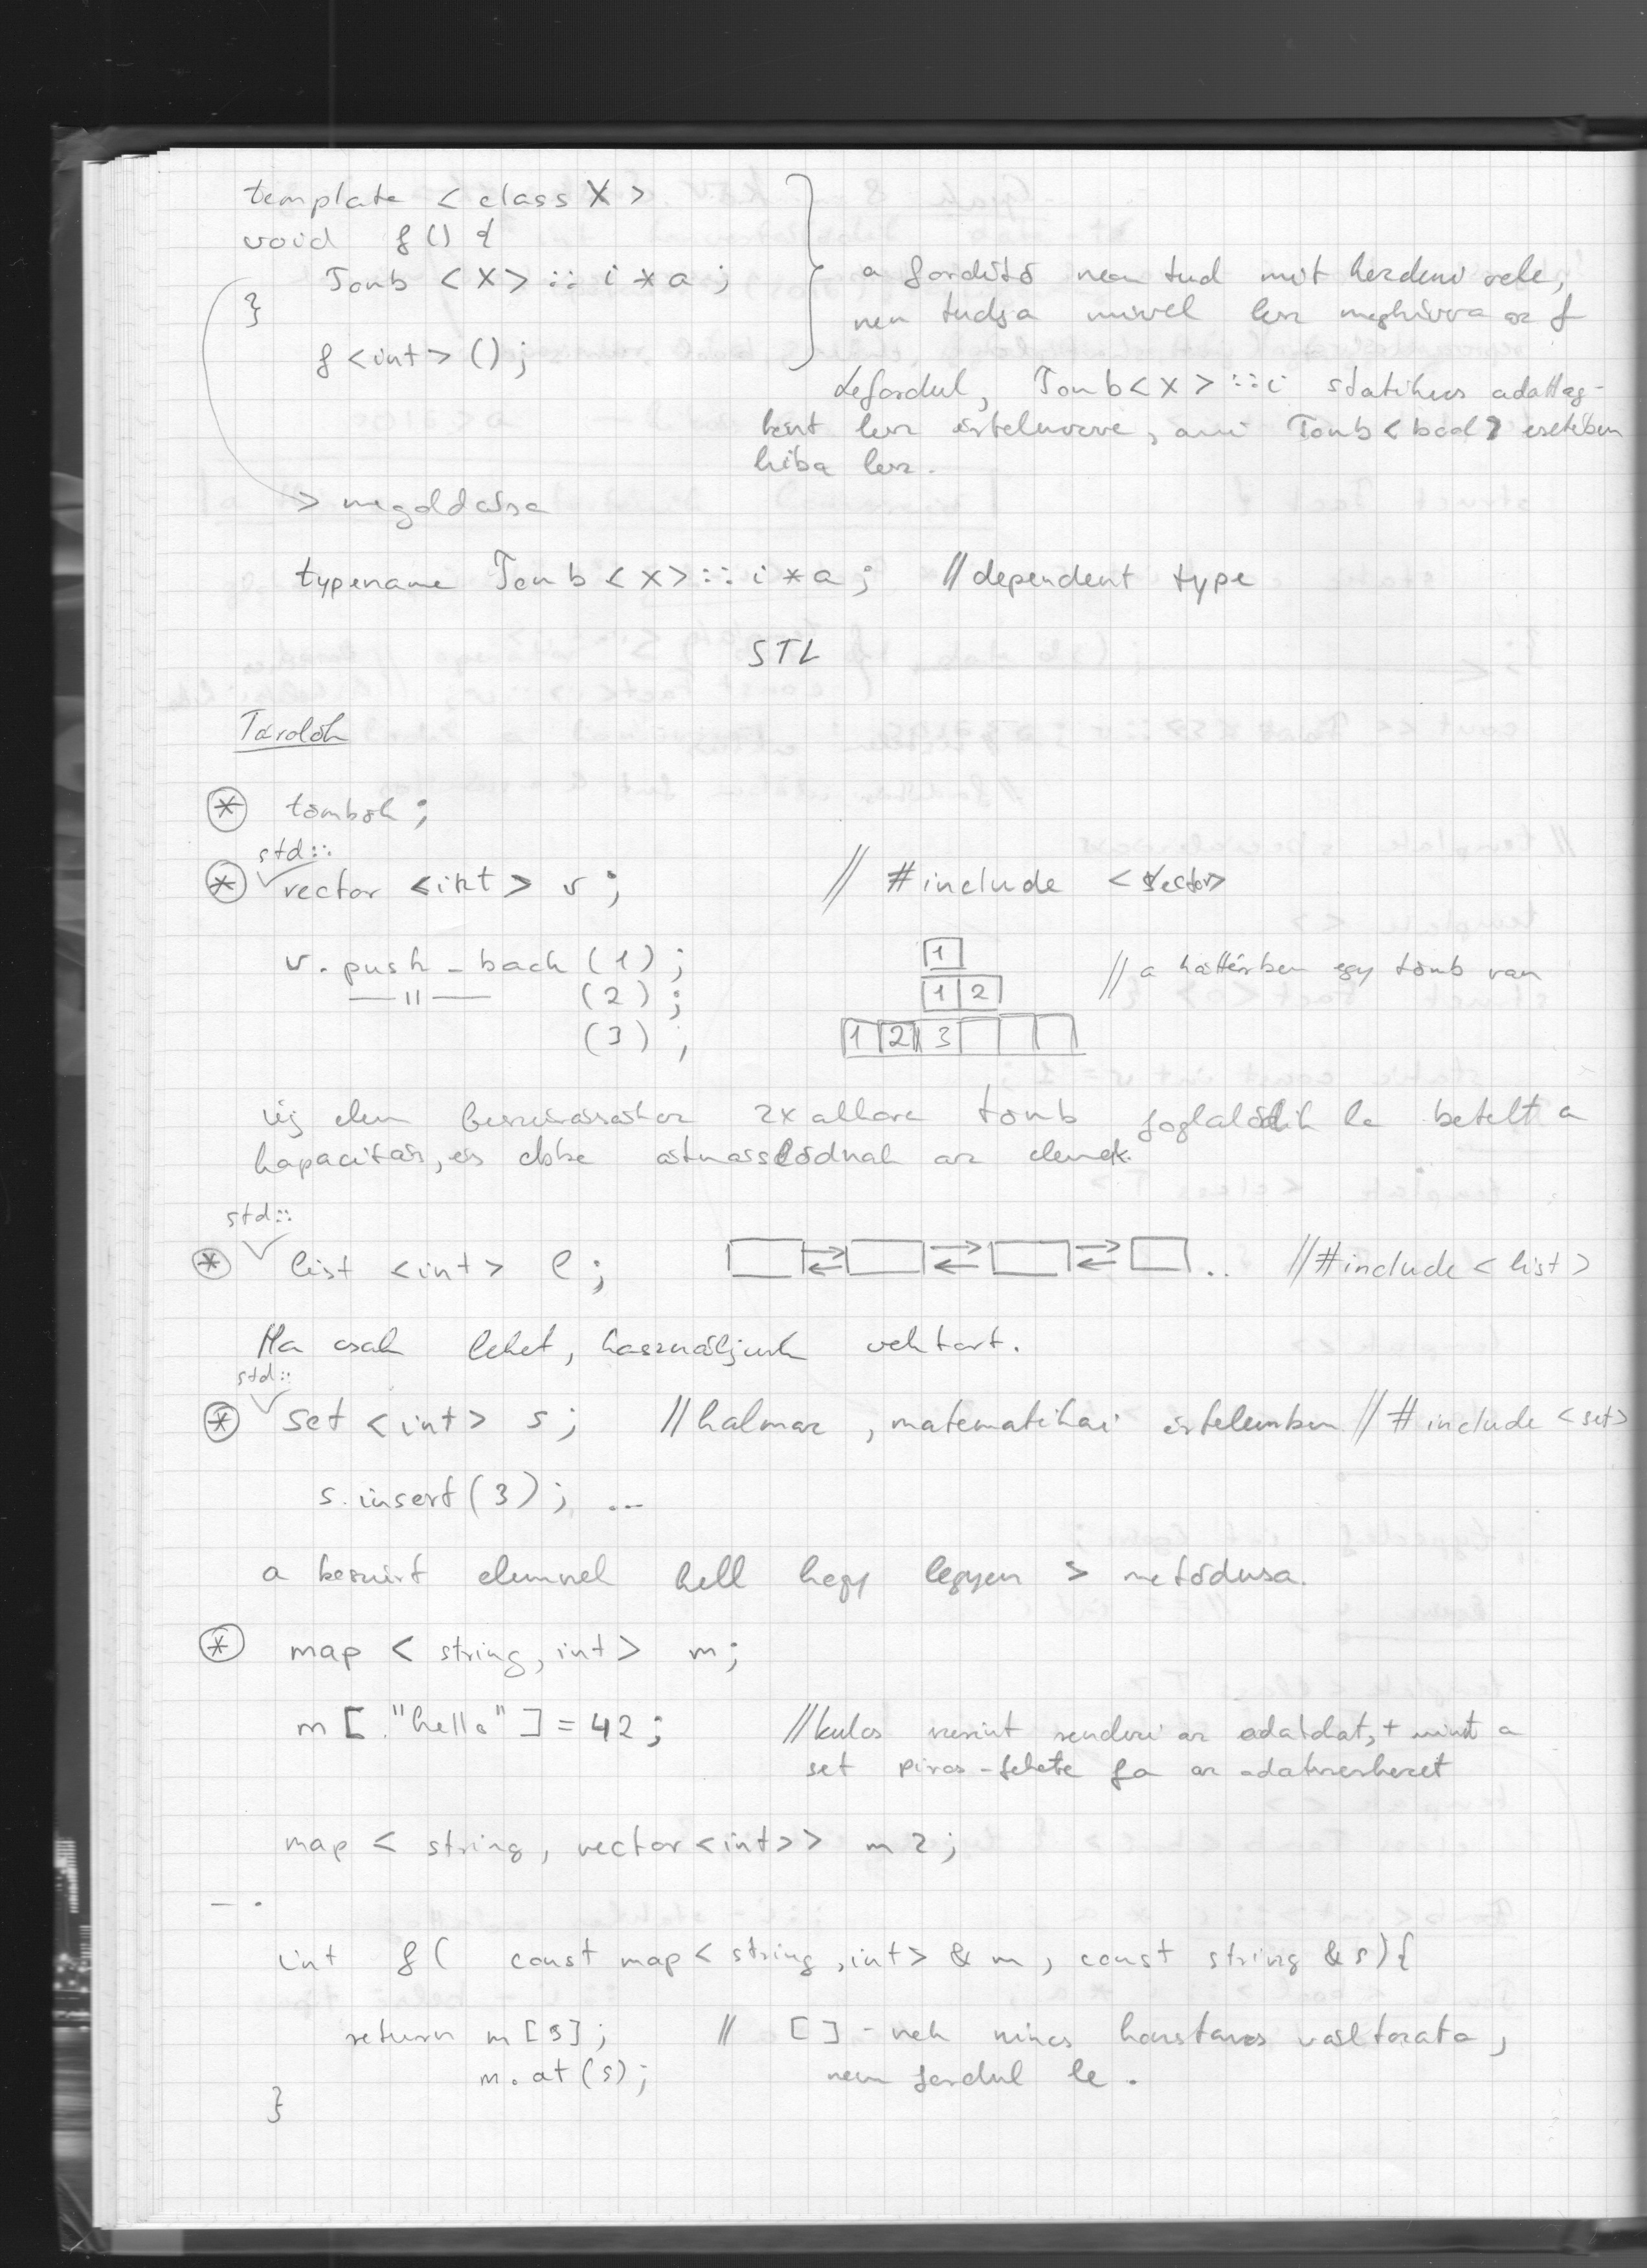 template <class X>
void f() {
Tomb <X>:: i * a;
}
f<int>();
a fordító nem tud mit kezdeni vele,
nem tudja mivel lesz meghívva az f
Lefordul, Tomb<X>::i statikus adattag-
ként lesz értelmezve, ami Tomb<bool> esetében
hiba lesz.
> megoldása
typename Tomb<X>::i*a; //dependent type
STL
Tárolók
* tömbök;
std::
* vector <int> v; // #include <vector>
v. push_back (1); 1 // a háttérben egy tömb van
—"— (2); 1 2
(3); 1 2 3
új elem beszúrásakor 2x akkora tömb foglalódik le betelt a
kapacitás, és ebbe átmásolódnak az elemek.
std::
* list <int> l; .. //#include <list>
Ha csak lehet, használjunk vektort.
std::
* set <int> s; //halmaz, matematikai értelemben // #include <set>
s.insert(3); ...
a beszúrt elemnek kell hogy legyen > metódusa.
* map < string, int> m;
m ["hello"] = 42; //kulcs szerint rendezi az adatokat, + mint a
set piros-fekete fa az adatszerkezet
map < string, vector<int>> m2;
int f( const map< string, int> & m, const string &s){
return m[s]; // []-nek nincs konstans változata,
m.at(s); nem fordul le.
}